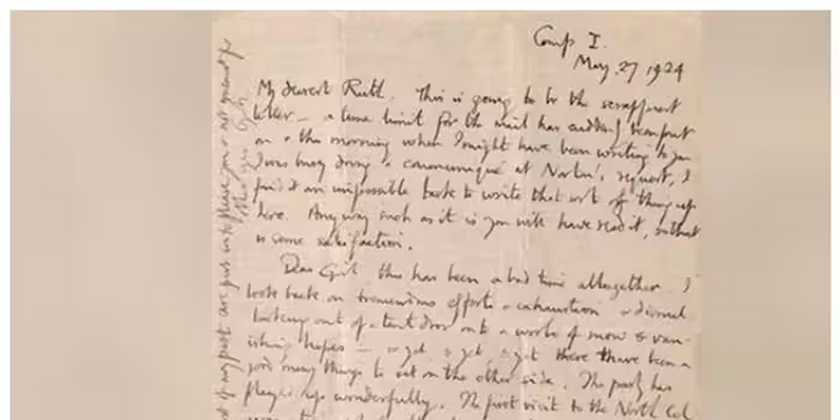 Camp I.
May 27 1924
My dearest Ruth. This is going to be the scrappiest
letter – a time limit for the mail has suddenly been put
on & this morning when I might have been writing to you
I was busy doing a communiqué at Norton's request, I
find it an impossible task to write that sort of thing up
here. Anyway such as it is you will have read it, & that
is some satisfaction.
Dear Girl this has been a bad time altogether. I
look back on tremendous efforts & exhaustion & dismal
looking out of a tent door onto a world of snow & van-
ishing hopes – & yet, & yet, & yet there have been a
good many things to set on the other side. The party has
played up wonderfully. The first visit to the North Col